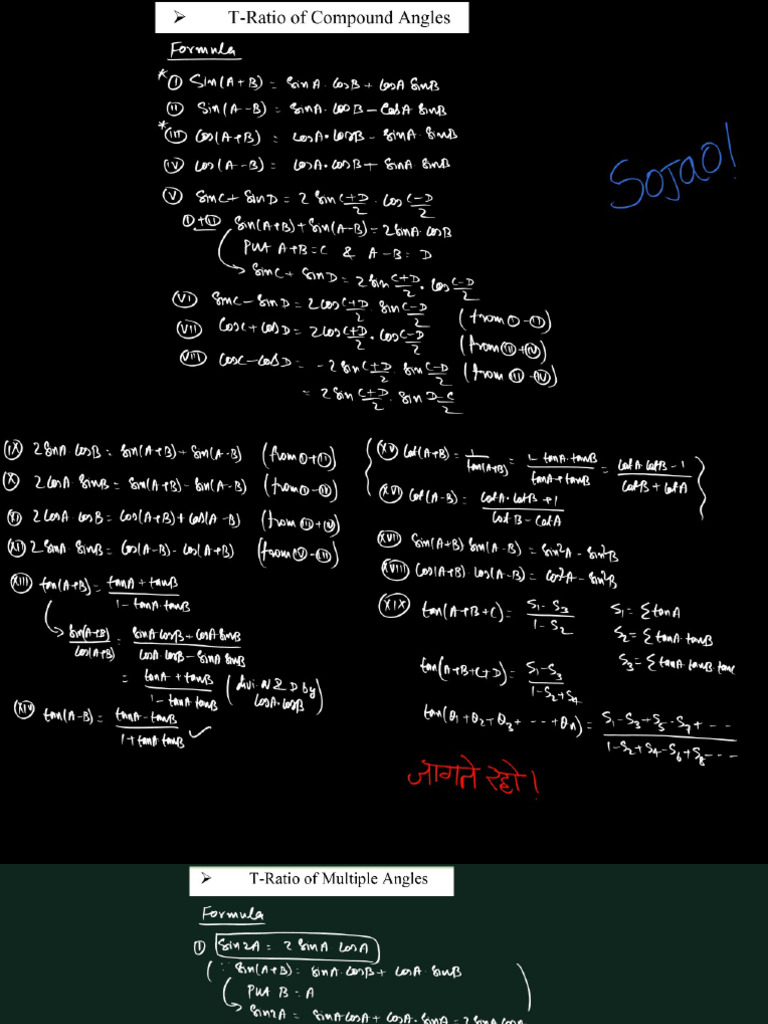 ➤ T-Ratio of Compound Angles
Formula
* (i) Sin(A+B) = SinA·CosB + CosA SinB
(ii) Sin(A-B) = SinA·CosB - CosA SinB
* (iii) Cos(A+B) = CosA·CosB - SinA·SinB
(iv) Cos(A-B) = CosA·CosB + SinA SinB
Sojao!
(v) SinC + SinD = 2 Sin (C+D)/2 · Cos (C-D)/2
(i)+(ii) Sin(A+B) + Sin(A-B) = 2SinA·CosB
Put A+B = C & A-B = D
SinC + SinD = 2 Sin (C+D)/2 · Cos (C-D)/2
(vi) SinC - SinD = 2 Cos (C+D)/2 · Sin (C-D)/2 (from (i)-(ii))
(vii) CosC + CosD = 2 Cos (C+D)/2 · Cos (C-D)/2 (from (iii)+(iv))
(viii) CosC - CosD = -2 Sin (C+D)/2 · Sin (C-D)/2 (from (iii)-(iv))
= 2 Sin (C+D)/2 · Sin (D-C)/2
(ix) 2 SinA CosB = Sin(A+B) + Sin(A-B) (from (i)+(ii))
(x) 2 CosA·SinB = Sin(A+B) - Sin(A-B) (from (i)-(ii))
(xi) 2 CosA CosB = Cos(A+B) + Cos(A-B) (from (iii)+(iv))
2 SinA SinB = Cos(A-B) - Cos(A+B)
(xiii) tan(A+B) = (tanA + tanB)/(1 - tanA·tanB)
Sin(A+B)/Cos(A+B) = (SinA·CosB + CosA·SinB)/(CosA·CosB - SinA SinB)
= (tanA + tanB)/(1 - tanA tanB) (Divi. N & D by CosA·CosB)
(xiv) tan(A-B) = (tanA - tanB)/(1 + tanA·tanB) ✓
(xv) Cot(A+B) = 1/tan(A+B) = (1 - tanA·tanB)/(tanA + tanB) = (CotA·CotB - 1)/(CotB + CotA)
(xvi) Cot(A-B) = (CotA·CotB + 1)/(CotB - CotA)
(xvii) Sin(A+B) Sin(A-B) = Sin²A - Sin²B
(xviii) Cos(A+B)·Cos(A-B) = Cos²A - Sin²B
(xix) tan(A+B+C) = (S₁ - S₃)/(1 - S₂) S₁ = Σ tanA
S₂ = Σ tanA·tanB
S₃ = Σ tanA·tanB·tanC
tan(A+B+C+D) = (S₁ - S₃)/(1 - S₂ + S₄)
tan(θ₁ + θ₂ + θ₃ + ··· + θn) = (S₁ - S₃ + S₅ - S₇ + ···)/(1 - S₂ + S₄ - S₆ + S₈ ···)
जागते रहो!
➤ T-Ratio of Multiple Angles
Formula
(i) Sin2A = 2 SinA CosA
(∵ Sin(A+B) = SinA·CosB + CosA·SinB
Put B = A
Sin2A = SinA CosA + CosA·SinA = 2 SinA CosA